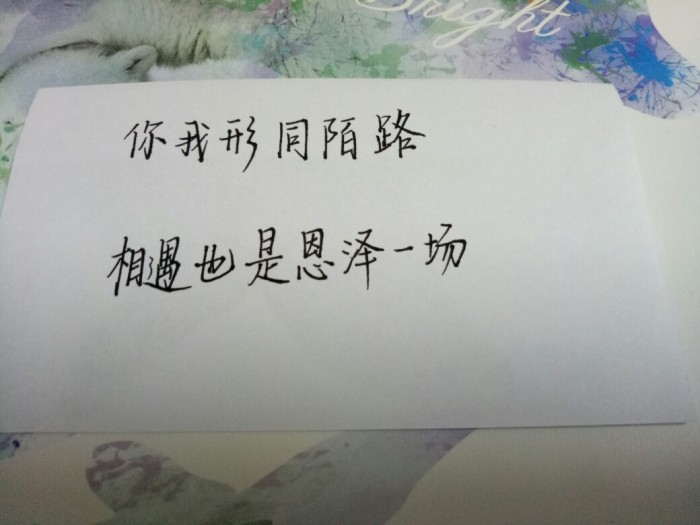 Bright
你我形同陌路
相遇也是恩泽一场